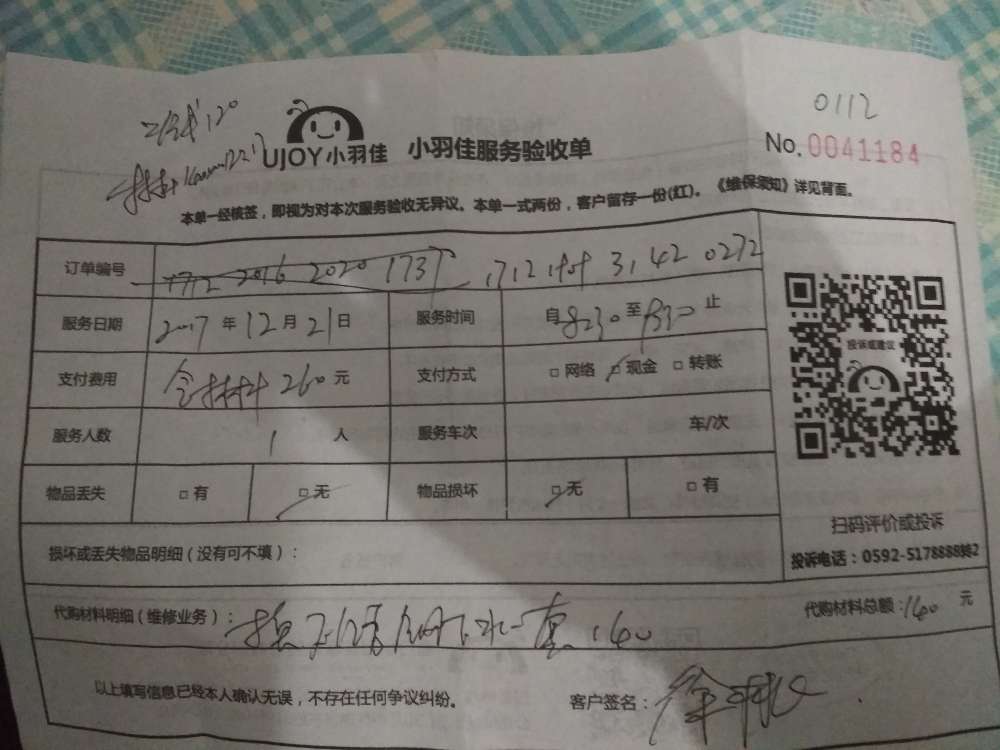 0112
UJOY小羽佳 小羽佳服务验收单 No.0041184
本单一经核签，即视为对本次服务验收无异议。本单一式两份，客户留存一份(红)。《维保须知》详见背面。
订单编号 1712 2016 2020 1737 1712 3142 0272
服务日期 2017年12月21日 服务时间 自8230至930止
支付费用 含材料260元 支付方式 □网络 □现金 □转账
服务人数 1人 服务车次 车/次
物品丢失 □有 □无 物品损坏 □无 □有
投诉或建议
扫码评价或投诉
投诉电话：0592-5178888转2
损坏或丢失物品明细（没有可不填）：
代购材料明细（维修业务）：换下水一套160 代购材料总额：160元
以上填写信息已经本人确认无误，不存在任何争议纠纷。 客户签名：徐